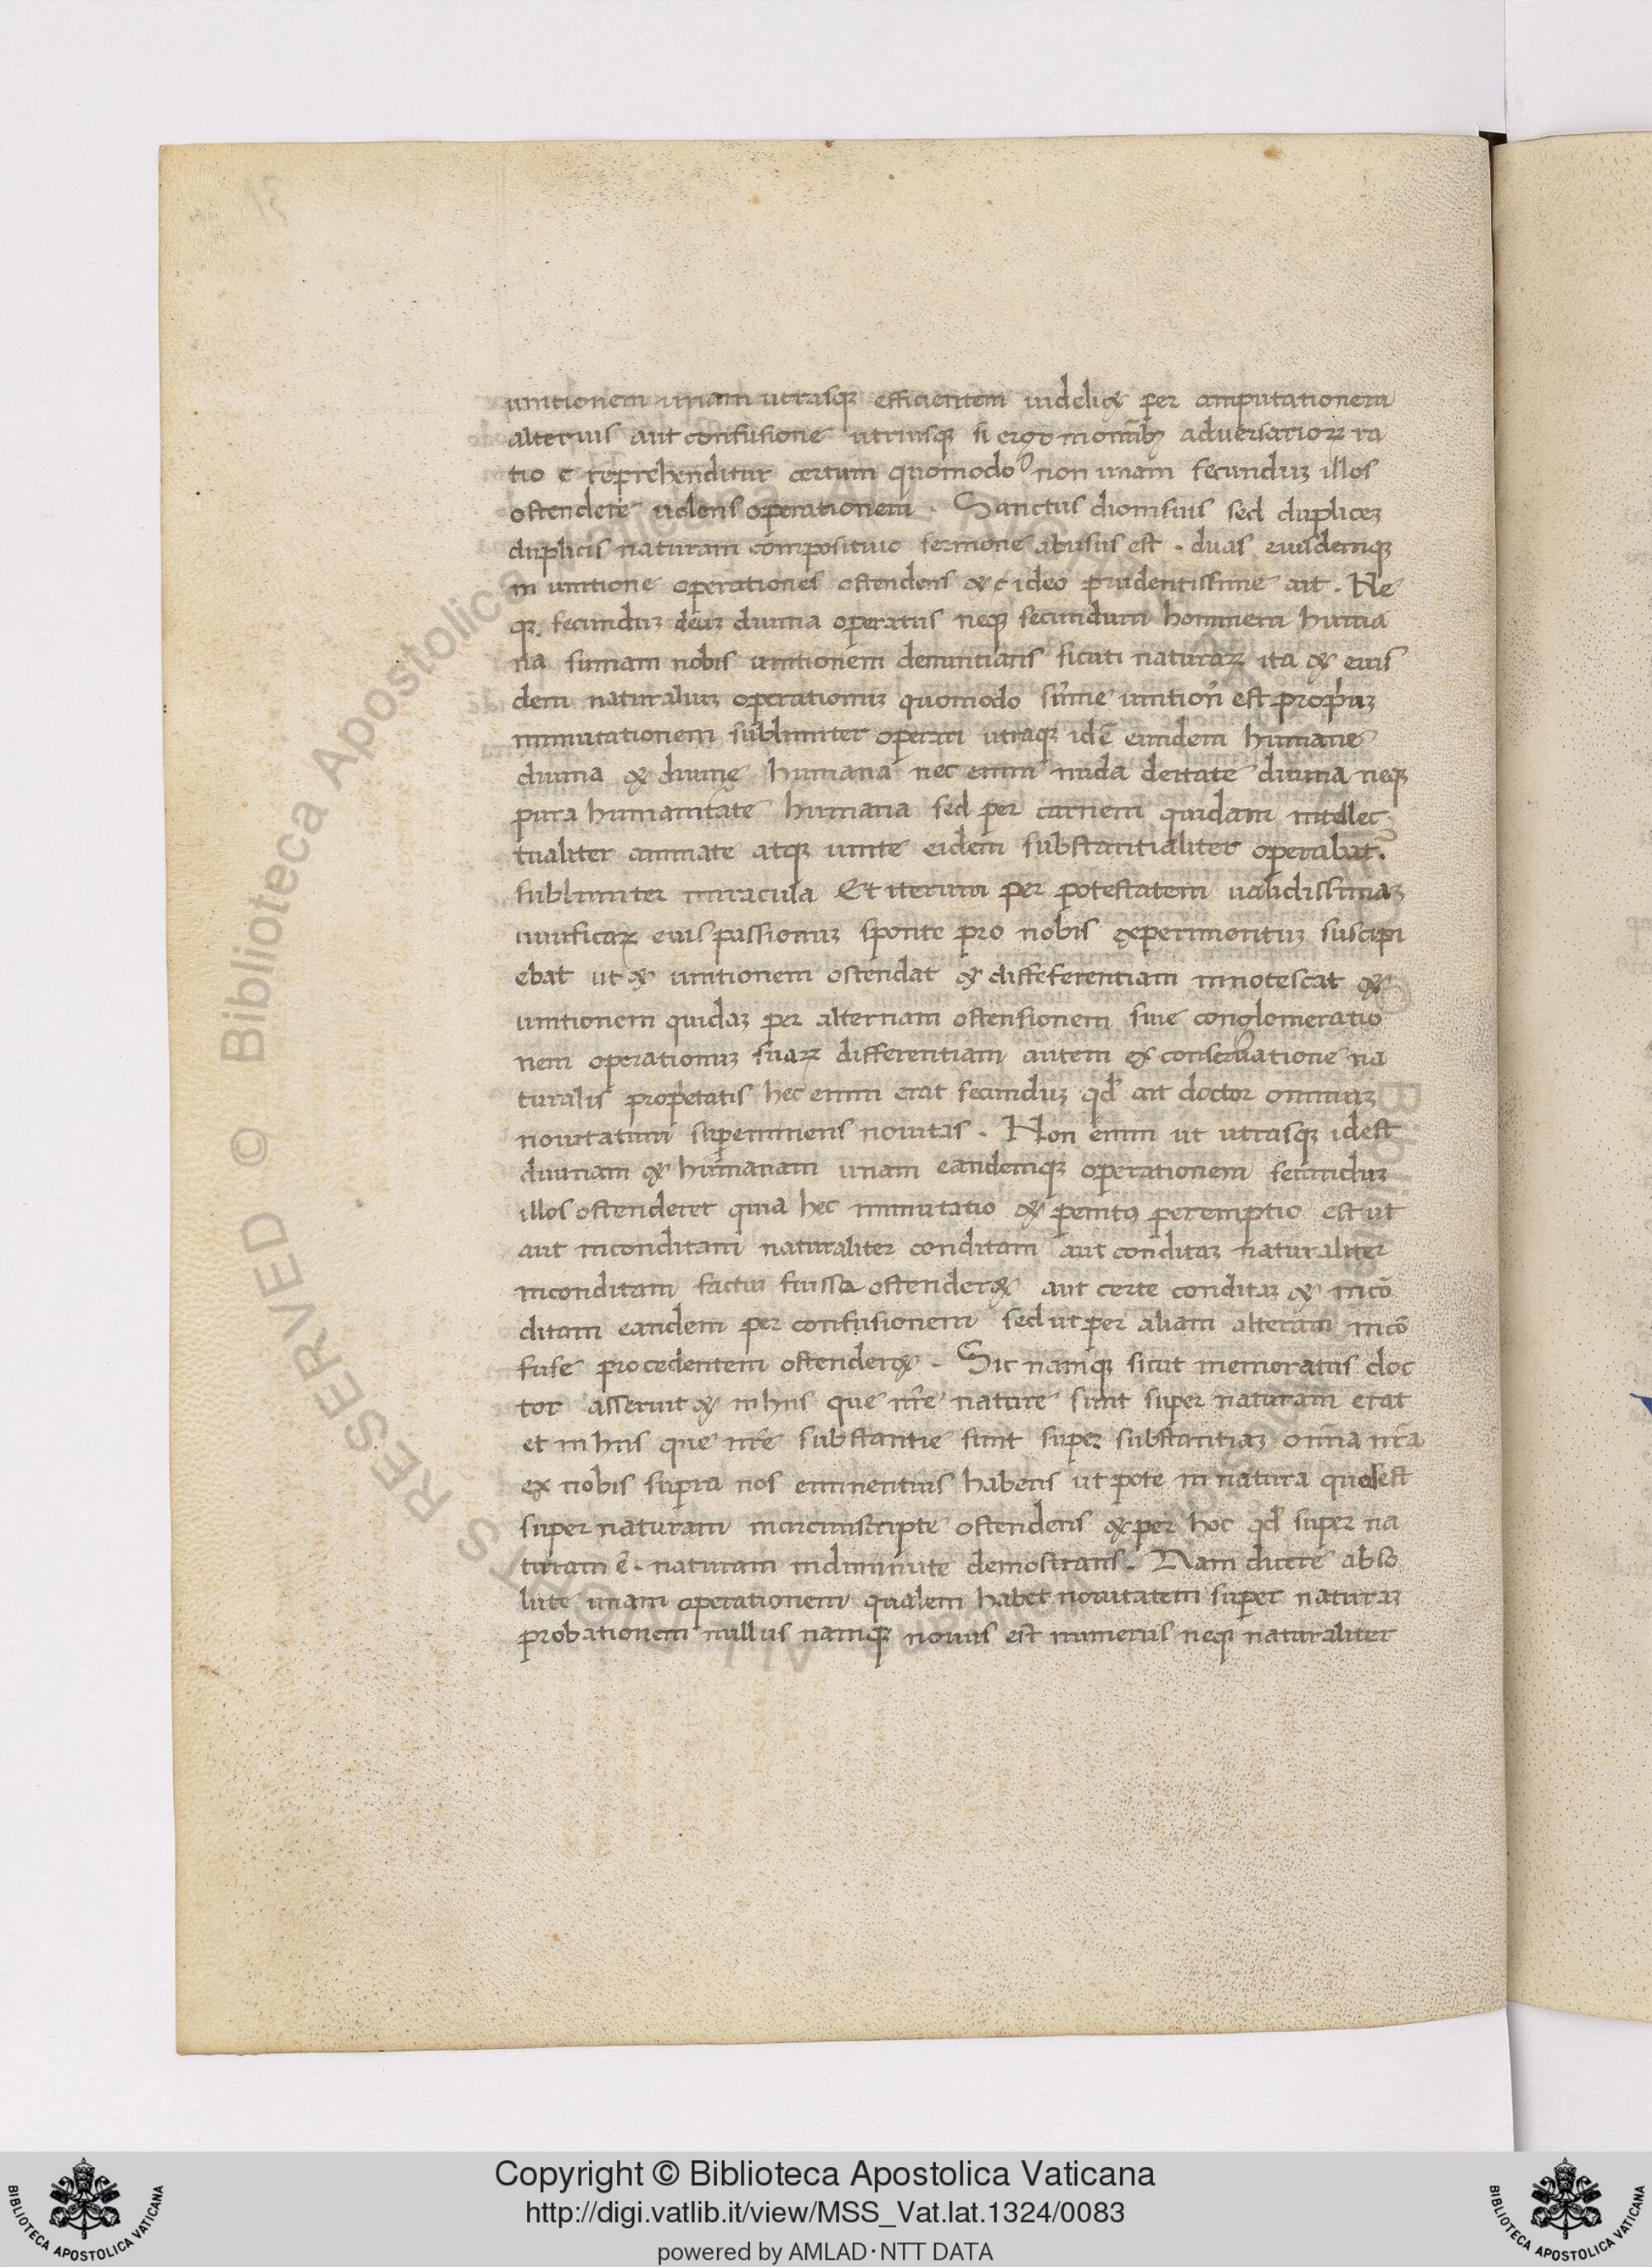 unitionem unam utrasq; efficientem uidelicꝫ per amputationem
alterius aut confusione utriusq; si ergo monitibꝫ aduersarioꝝ ra
tio e reprehenditur certum quomodo non unam secunduꝫ illos
ostendere uolens operationem. Sanctus dionisius sed dupliceꝫ
duplicis naturam compositiuo sermone abusus est. duas eiusdemq;
in unitione operationes ostendens & ideo prudentissime ait. Ne
q; secunduꝫ deuꝫ diuina operatus neq; secundum hominem huma
na sumam nobis unitionem denuntians sicuti naturaꝝ ita & eius
dem naturaliuꝫ operationuꝫ quomodo sum̄e unition̄ est propriuꝫ
inmutationem sublimiter operari utraq; idē eundem humane
diuina & diuine humana nec enim nuda deitate diuina neq;
pura humanitate humana sed per carnem quidam intellec
tualiter animate atq; unite eidem substantialiter operabat̉.
sublimiter miracula Et iterum per potestatem ualidissimaꝫ
uiuificaꝝ eius passionuꝫ sponte pro nobis experimentuꝫ suscipi
ebat ut & unitionem ostendat & diffeferentiam innotescat &
unitionem quidaꝫ per alternam ostensionem siue conglomeratio
nem operationuꝫ suaꝝ differentiam autem ex conseruatione na
turalis proprietatis hec enim erat secunduꝫ qd̄ ait doctor omniuꝫ
nouitatum supereminens nouitas. Non enim ut utrasq; idest
diuinam & humanam unam eandemq; operationem secunduꝫ
illos ostenderet quia hec inmutatio & penitus peremptio est ut
aut inconditam naturaliter conditam aut conditaꝫ naturaliter
inconditam factuꝫ fuisse ostender& aut certe conditaꝫ & incō
ditam eandem per confusionem sed ut per aliam alteram incō
fuse procedentem ostender&. Sic namq; sicut memoratus doc
tor asseruit & in hiis que nr̄e nature sunt super naturam erat
et in hiis que nr̄e substantie sunt super substantiaꝫ omīa nr̄a
ex nobis supra nos eminentius habens ut pote in natura quod est
super naturam incircumscripte ostendens & per hoc qd̄ super na
turam ē. naturam indiminute demostrans. Nam dicere abso
lute unam operationem qualem habet nouitatem super naturaꝫ
probationem nullus namq; nouus est numerus neq; naturaliter
RESERVED © Biblioteca Apostolica Vaticana
Copyright © Biblioteca Apostolica Vaticana
http://digi.vatlib.it/view/MSS_Vat.lat.1324/0083
powered by AMLAD·NTT DATA
BIBLIOTECA APOSTOLICA VATICANA
BIBLIOTECA APOSTOLICA VATICANA